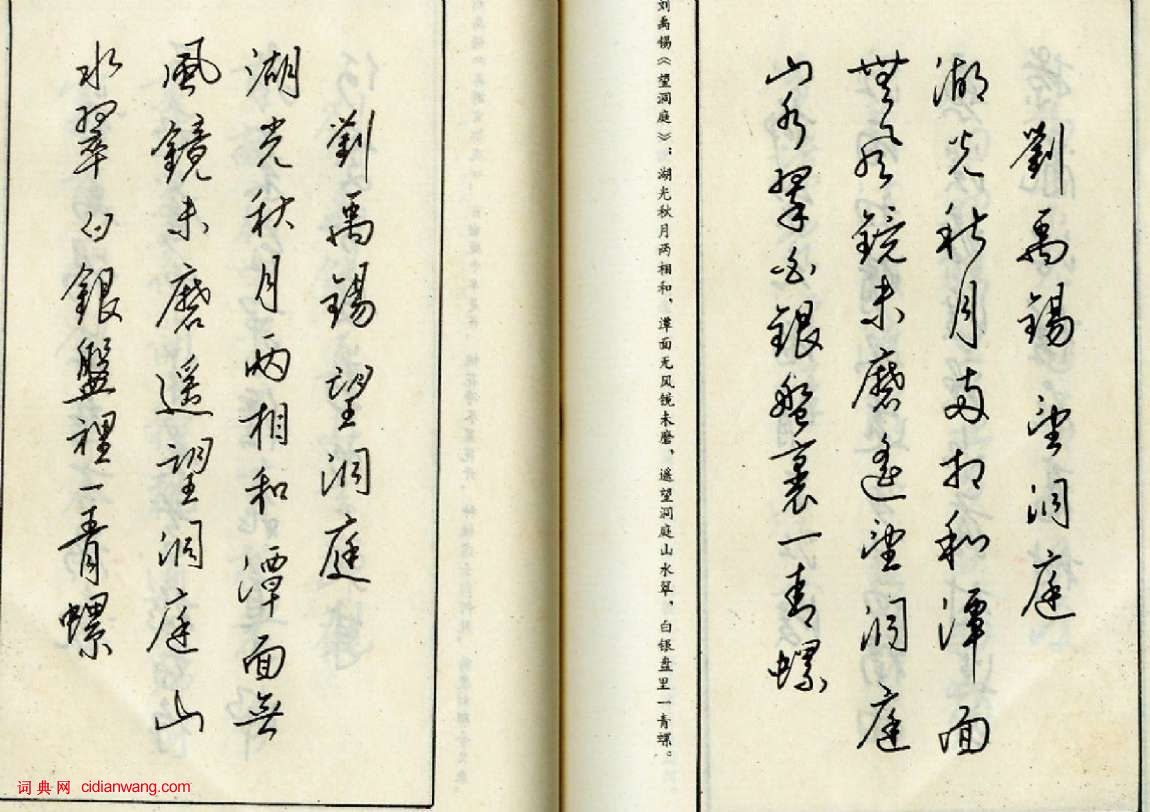 劉禹錫望洞庭
湖光秋月兩相和潭面
無風鏡未磨遙望洞庭
山水翠白銀盤裏一青螺
刘禹锡《望洞庭》：湖光秋月两相和，潭面无风镜未磨，遥望洞庭山水翠，白银盘里一青螺。
劉禹錫望洞庭
湖光秋月兩相和潭面無
風鏡未磨遥望洞庭山
水翠白銀盤裡一青螺
词典网 cidianwang.com